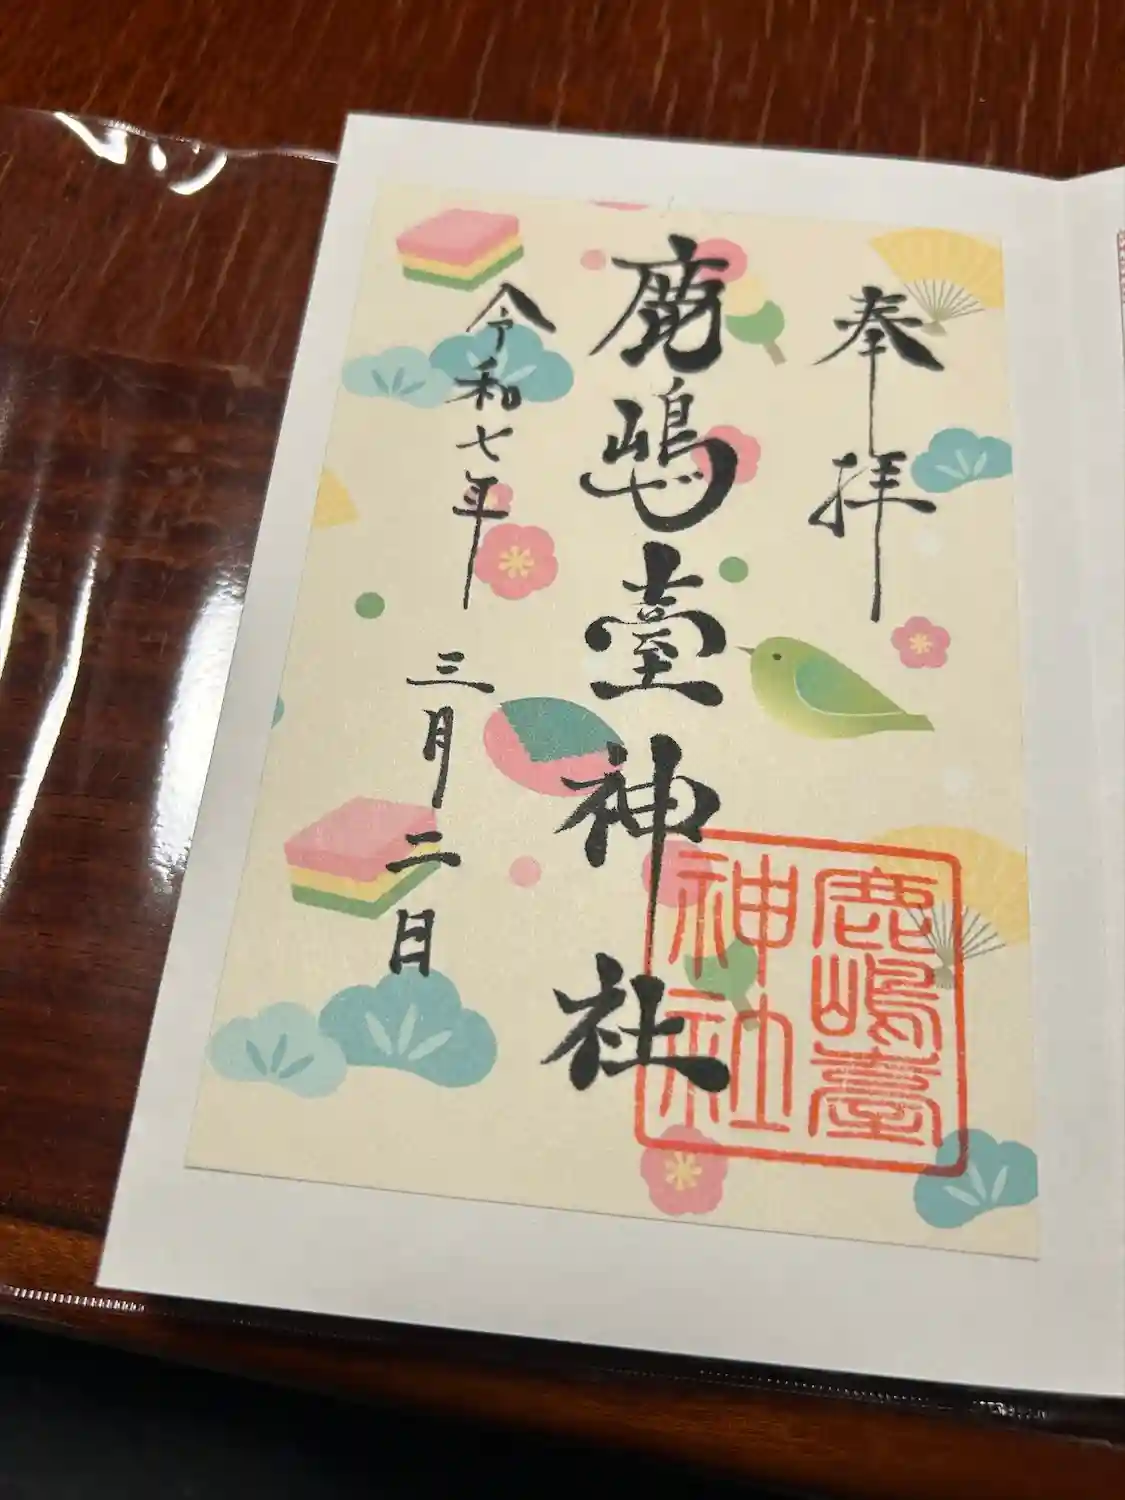 奉拝
鹿嶋臺神社
鹿嶋臺
神社
令和七年
三月二日